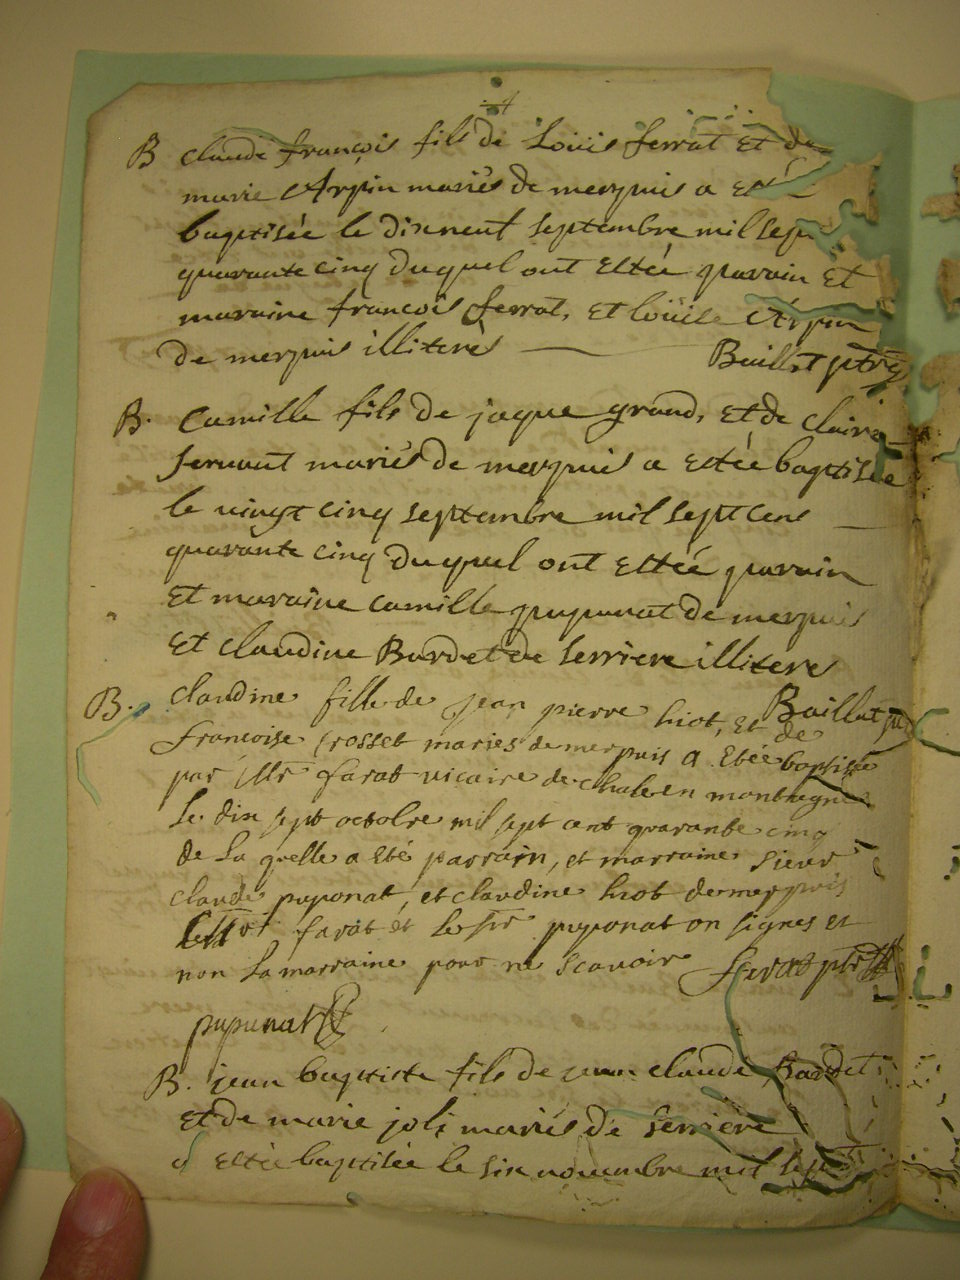 B claude françois fils de Loüis ferrat et de
marie Arpin mariés de merpuis a esté
baptisée le dixneuf septembre mil sept
quarante cinq duquel ont estée parain et
maraine francois ferrat, et loüise Arpin
de merpuis illiterés Baillat ptre
B. Camille fils de jaque grand, et de claire
servant mariés de merpuis a estée baptisée
le vingt cinq septembre mil sept cens
quarante cinq duquel ont estée parain
et maraine camille puponat de merpuis
et claudine Bardet de serriere illiteré
Baillat
B. claudine fille de jean pierre hiot, et de
francoise crosset mariés de merpuis a etée baptisée
par farat vicaire de chaley en montagne
le dix sept octobre mil sept cent quarante cinq
de la quelle a eté parrain, et marraine sieur
claude puponat, et claudine hiot de merpuis
farat et le sr puponat on signes et
non la marraine pour ne scavoir farat ptre
puponat
B. jean baptiste fils de jean claude bardet
et de marie joli mariés de serriere
a estée baptisée le six novembre mil sept